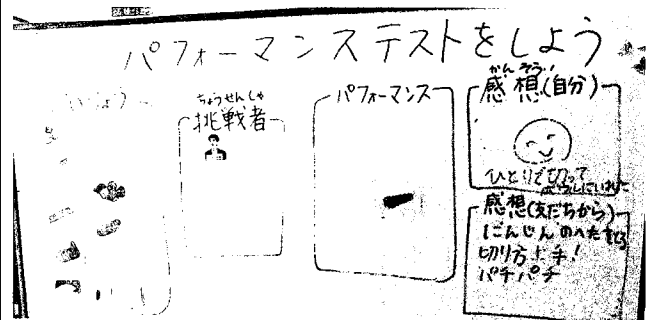 パフォーマンステストをしよう
ちょうせんしゃ
挑戦者
パフォーマンス
かんそう
感想(自分)
ひとりで切って
感想(友だちから)
にんじんのへたを
切り方上手!
パチパチ